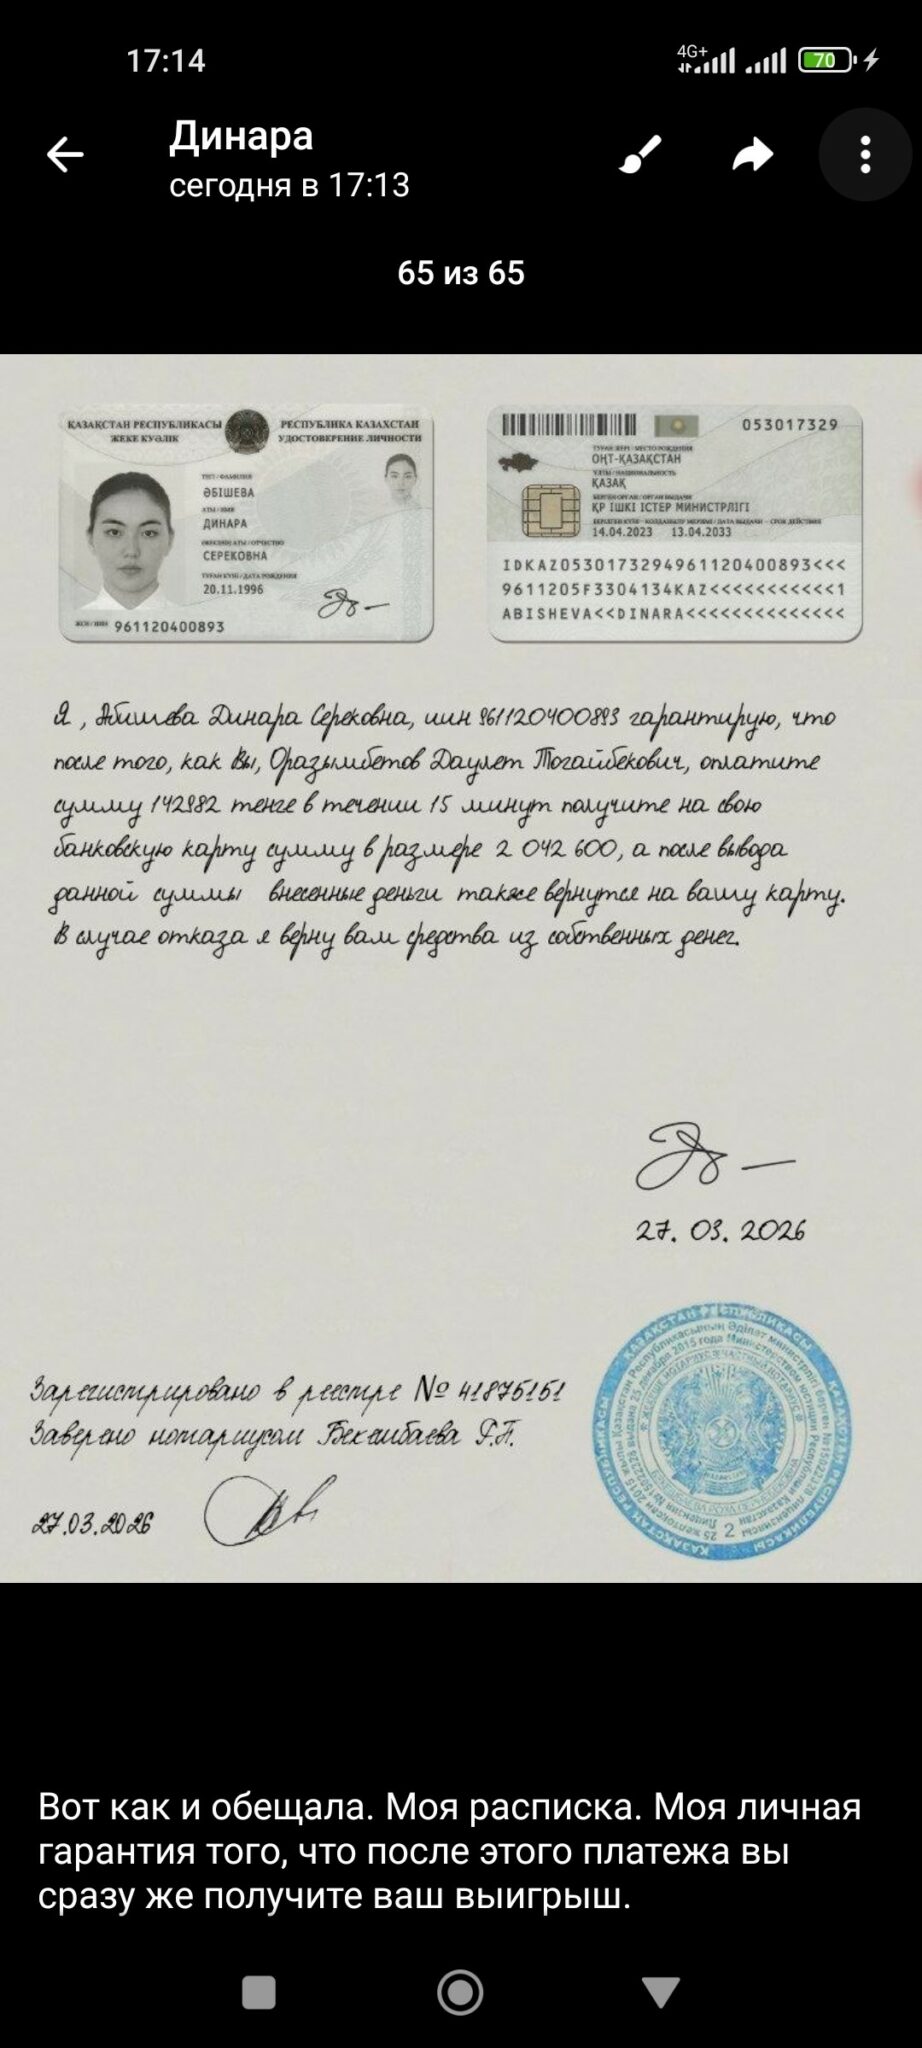 17:14
4G+
70
Динара
сегодня в 17:13
65 из 65
ҚАЗАҚСТАН РЕСПУБЛИКАСЫ
ЖЕКЕ КУӘЛІК
РЕСПУБЛИКА КАЗАХСТАН
УДОСТОВЕРЕНИЕ ЛИЧНОСТИ
ТЕГІ / ФАМИЛИЯ
ӘБІШЕВА
АТЫ / ИМЯ
ДИНАРА
ӘКЕСІНІҢ АТЫ / ОТЧЕСТВО
СЕРЕКОВНА
ТУҒАН КҮНІ / ДАТА РОЖДЕНИЯ
20.11.1996
ЖСН / ИИН 961120400893
053017329
ТУҒАН ЖЕРІ / МЕСТО РОЖДЕНИЯ
ОҢТ-ҚАЗАҚСТАН
ҰЛТЫ / НАЦИОНАЛЬНОСТЬ
ҚАЗАҚ
БЕРГЕН ОРГАН / ОРГАН ВЫДАЧИ
ҚР ІШКІ ІСТЕР МИНИСТРЛІГІ
БЕРІЛГЕН КҮНІ - ҚОЛДАНЫЛУ МЕРЗІМІ / ДАТА ВЫДАЧИ - СРОК ДЕЙСТВИЯ
14.04.2023 13.04.2033
IDKAZ0530173294961120400893<<<
9611205F3304134KAZ<<<<<<<<<<<1
ABISHEVA<<DINARA<<<<<<<<<<<<<<
Я, Абишева Динара Серековна, иин 961120400893 гарантирую, что
после того, как Вы, Оразымбетов Даулет Тогайбекович, оплатите
сумму 142982 тенге в течении 15 минут получите на свою
банковскую карту сумму в размере 2 042 600, а после вывода
данной суммы внесенные деньги также вернутся на вашу карту.
В случае отказа я верну вам средства из собственных денег.
27. 03. 2026
Зарегистрировано в реестре № 41875151
Заверено нотариусом Бекешбаева Р.П.
27.03.2026
ҚАЗАҚСТАН РЕСПУБЛИКАСЫ
2
Вот как и обещала. Моя расписка. Моя личная
гарантия того, что после этого платежа вы
сразу же получите ваш выигрыш.